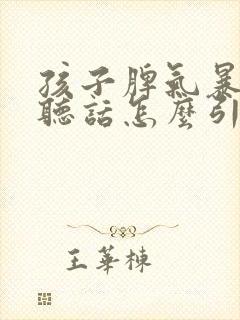 孩子脾氣暴
聽話怎麼引
王華棟